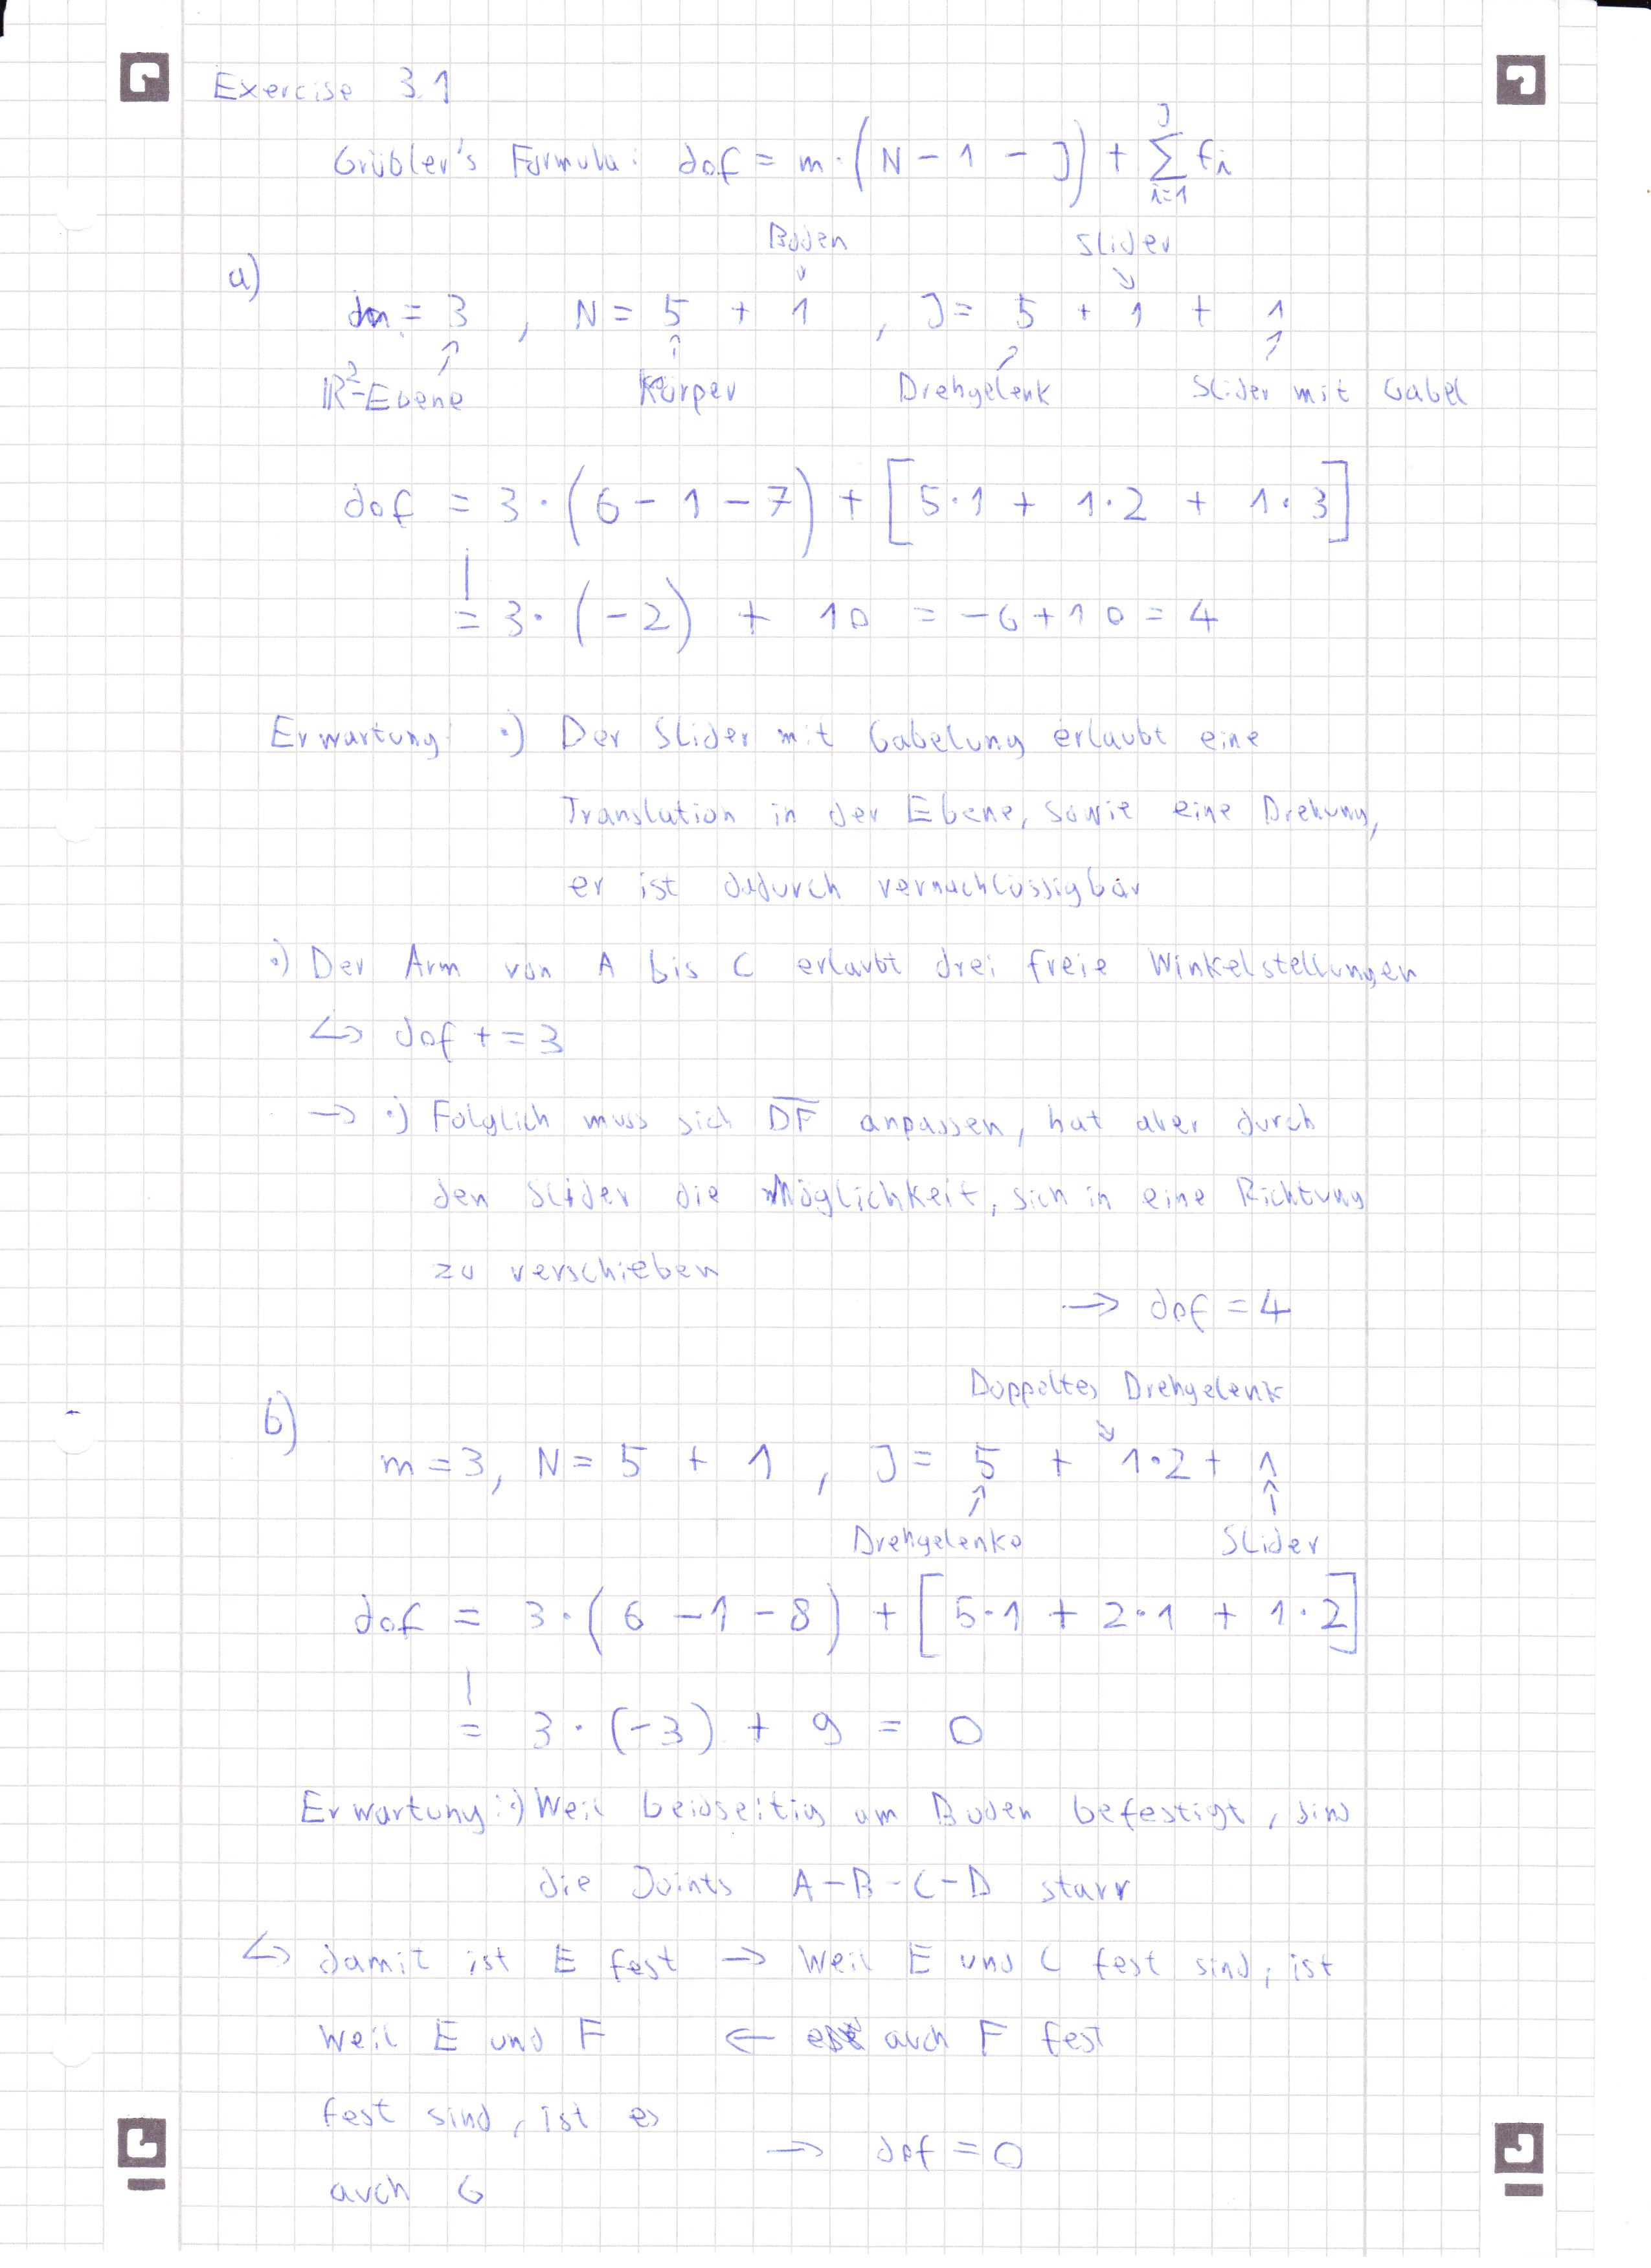 Exercise 3.1
Grübler's Formula: dof = m · (N - 1 - J) + J ∑ i=1 fi
Boden Slider
↓ ↘
a)
m = 3, N = 5 + 1, J = 5 + 1 + 1
↗ ↑ ↗ ↑
ℝ²-Ebene Körper Drehgelenk Slider mit Gabel
dof = 3 · (6 - 1 - 7) + [5·1 + 1·2 + 1·3]
! = 3 · (-2) + 10 = -6 + 10 = 4
Erwartung: •) Der Slider mit Gabelung erlaubt eine
Translation in der Ebene, sowie eine Drehung,
er ist dadurch vernachlässigbar
•) Der Arm von A bis C erlaubt drei freie Winkelstellungen
↳ dof += 3
→ •) Folglich muss sich D̅F̅ anpassen, hat aber durch
den Slider die Möglichkeit, sich in eine Richtung
zu verschieben
→ dof = 4
Doppeltes Drehgelenk
↘
b)
m = 3, N = 5 + 1, J = 5 + 1·2 + 1
↗ ↑
Drehgelenke Slider
dof = 3 · (6 - 1 - 8) + [5·1 + 2·1 + 1·2]
! = 3 · (-3) + 9 = 0
Erwartung: •) Weil beidseitig am Boden befestigt, sind
die Joints A-B-C-D starr
↳ damit ist E fest → Weil E und C fest sind, ist
Weil E und F ← auch F fest
fest sind, ist es
→ dof = 0
auch G